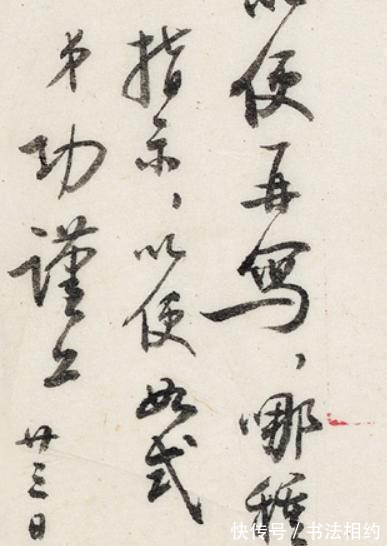 以便再寫，哪種
指示，以便如式
弟功謹上
廿三日
快传号/书法相约